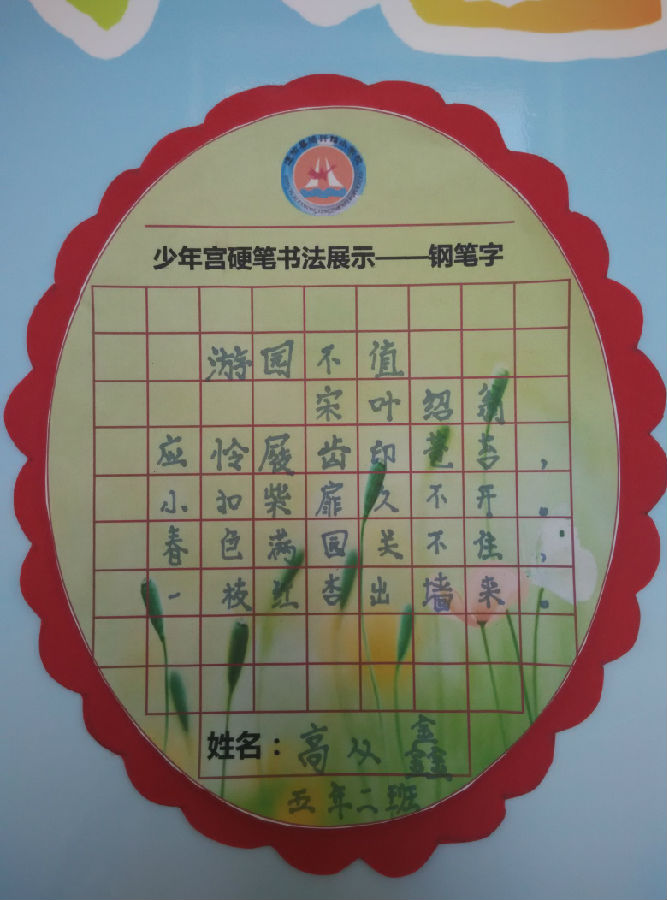 少年宫硬笔书法展示——钢笔字
游园不值
宋叶绍翁
应怜屐齿印苍苔，
小扣柴扉久不开。
春色满园关不住，
一枝红杏出墙来。
姓名：高从鑫
五年二班